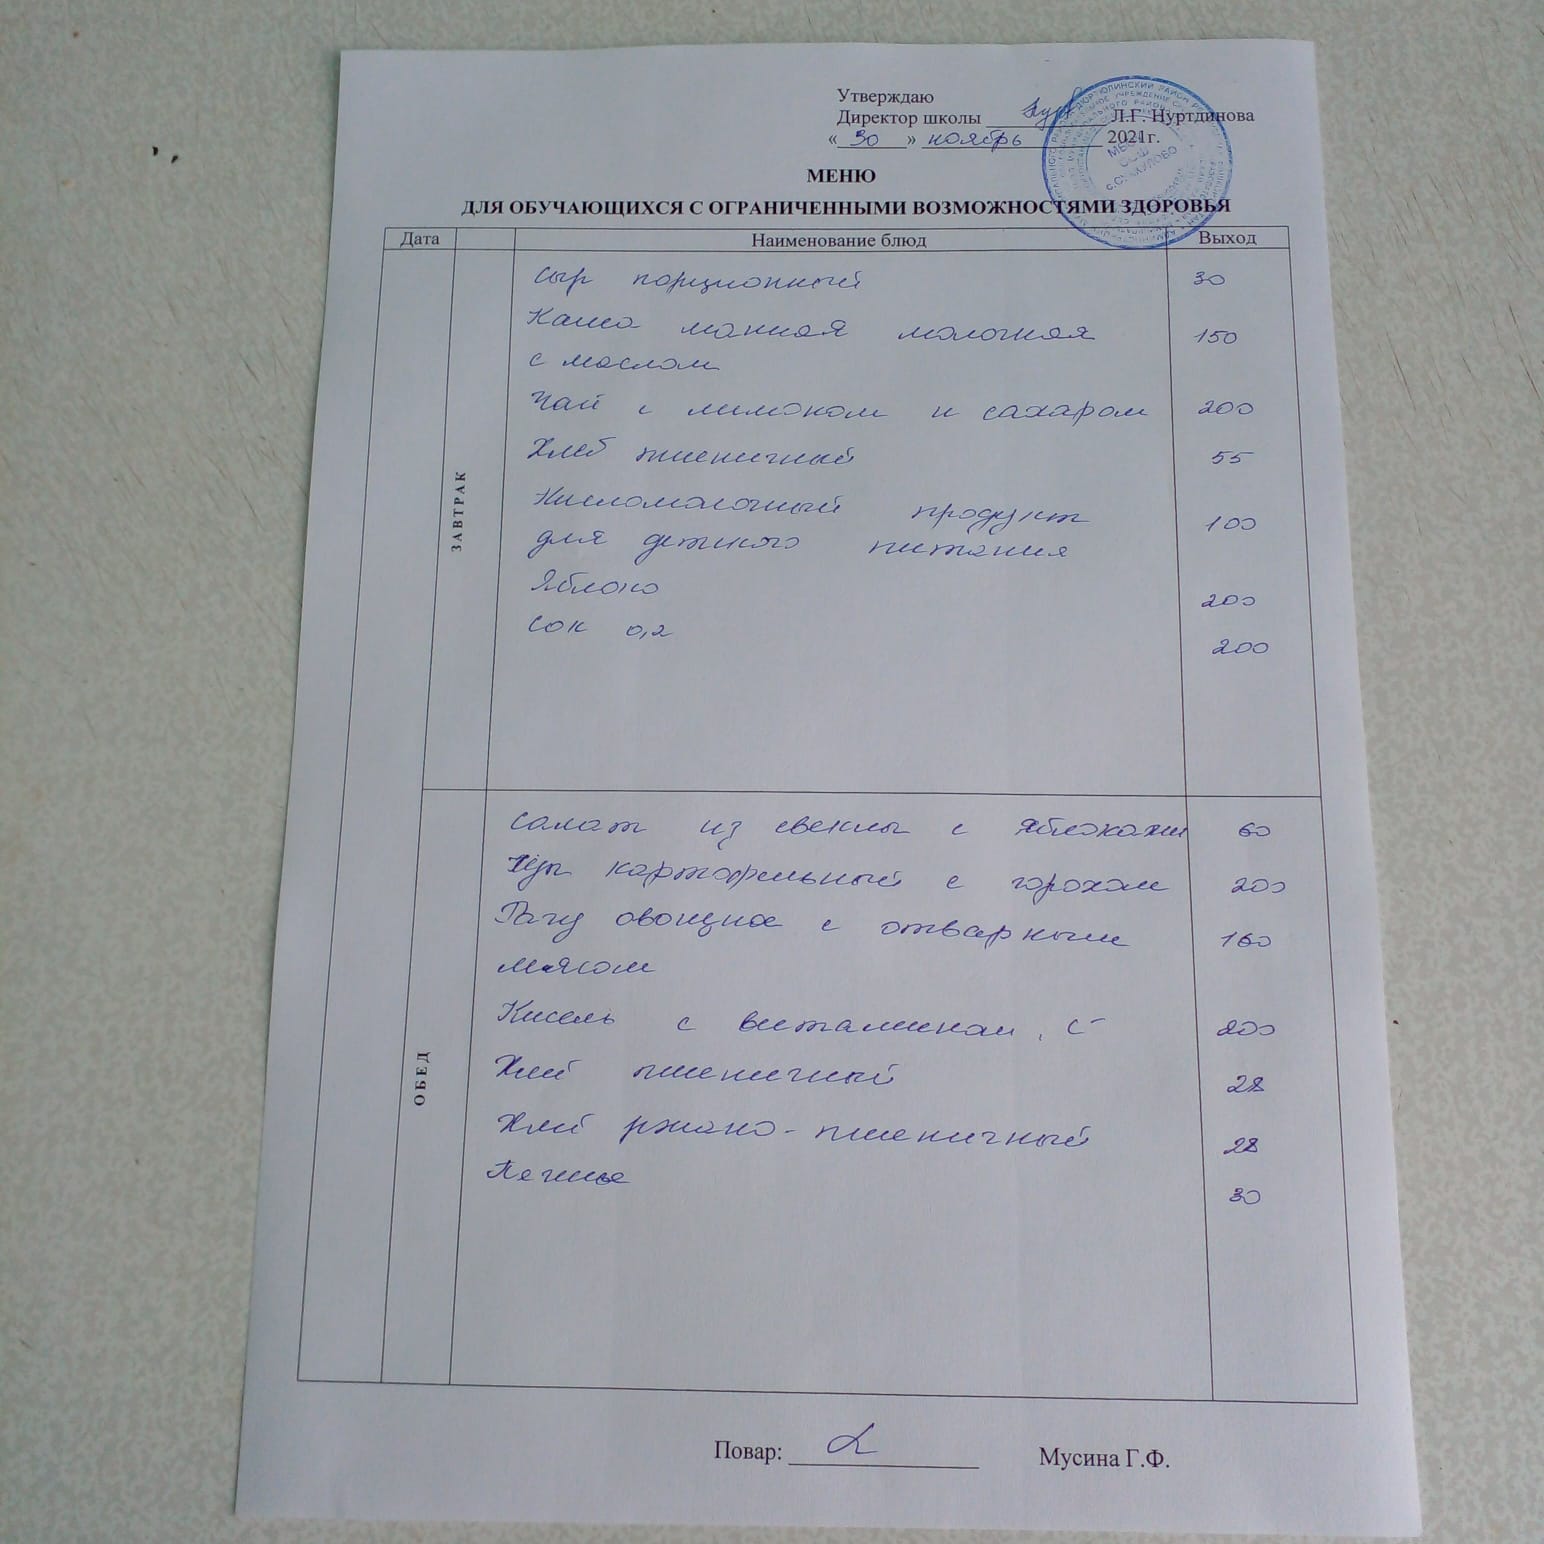 Утверждаю
Директор школы Л.Г. Нуртдинова
« 30 » ноябрь 2021г.
МБОУ
СОШ
МЕНЮ
ДЛЯ ОБУЧАЮЩИХСЯ С ОГРАНИЧЕННЫМИ ВОЗМОЖНОСТЯМИ ЗДОРОВЬЯ
Дата Наименование блюд Выход
ЗАВТРАК
Сыр порционный 30
Каша манная молочная 150
с маслом
Чай с лимоном и сахаром 200
Хлеб пшеничный 55
Кисломолочный продукт 100
для детского питания
Яблоко 200
Сок 0,2 200
ОБЕД
Салат из свеклы с яблоками 60
Суп картофельный с горохом 200
Рагу овощное с отварным 160
мясом
Кисель с витамином , С 200
Хлеб пшеничный 28
Хлеб ржано-пшеничный 28
Печенье 30
Повар: Мусина Г.Ф.